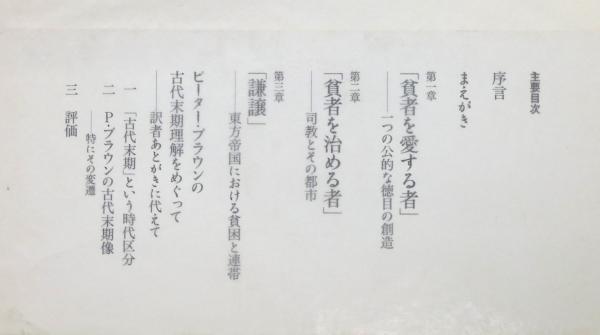 主要目次
序言
まえがき
第一章
「貧者を愛する者」
――一つの公的な徳目の創造
第二章
「貧者を治める者」
――司教とその都市
第三章
「謙譲」
――東方帝国における貧困と連帯
ピーター・ブラウンの
古代末期理解をめぐって
――訳者あとがきに代えて
一 「古代末期」という時代区分
二 P・ブラウンの古代末期像
――特にその変遷
三 評価